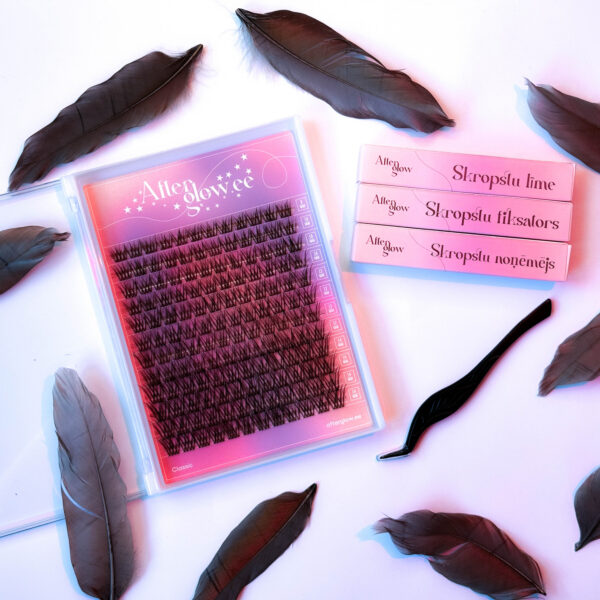 After
glow.ee
Classic
afterglow.ee
After
glow
Skropstu līme
After
glow
Skropstu fiksators
After
glow
Skropstu noņēmējs